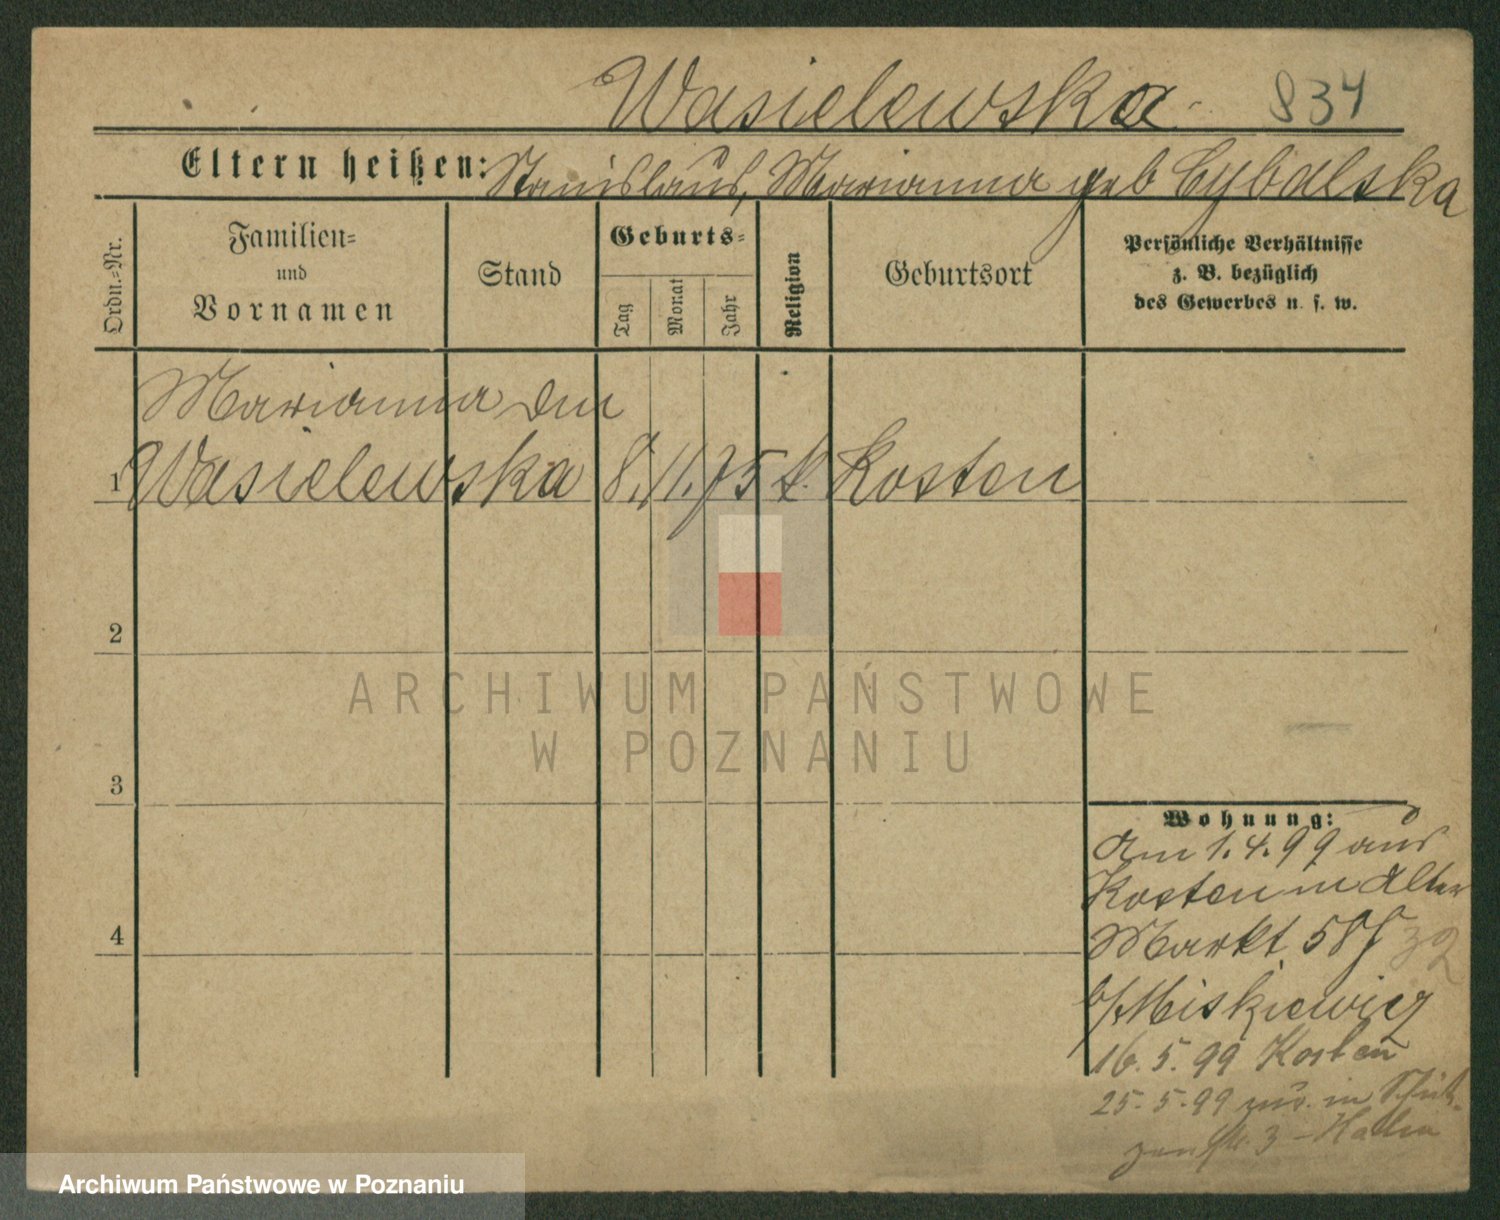 Wasielewska 834
Eltern heißen: Stanislaus, Marianna geb Cybalska
Ordn.=Nr.
Familien=
und
Vornamen
Stand
Geburts=
Tag
Monat
Jahr
Religion
Geburtsort
Persönliche Verhältnisse
z. B. bezüglich
des Gewerbes u. s. w.
Marianna
1 Wasielewska 8. 11. 75 k. Kosten
2
3
4
Wohnung:
Am 1. 4. 99 aus
Kosten in Alter
Markt 58
b/ Miskiewicz
16. 5. 99 Kosten
25. 5. 99 zur. in Schüt-
zenstr. 3
ARCHIWUM PAŃSTWOWE
W POZNANIU
Archiwum Państwowe w Poznaniu